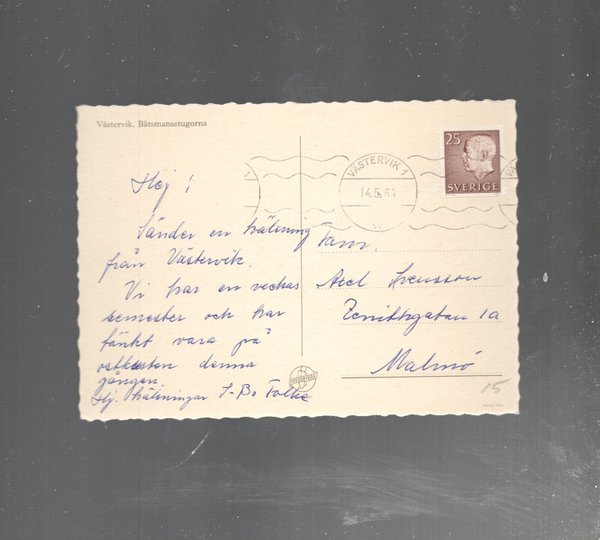 Västervik. Båtsmansstugorna
Hej!
Sänder en hälsning
från Västervik.
Vi har en veckas
semester och har
tänkt vara på
ostkusten denna
gången.
Hj. hälsningar
VÄSTERVIK 1
14.5.64
25
SVERIGE
Fam.
Axel Svensson
Zenithgatan 1a
Malmö
15